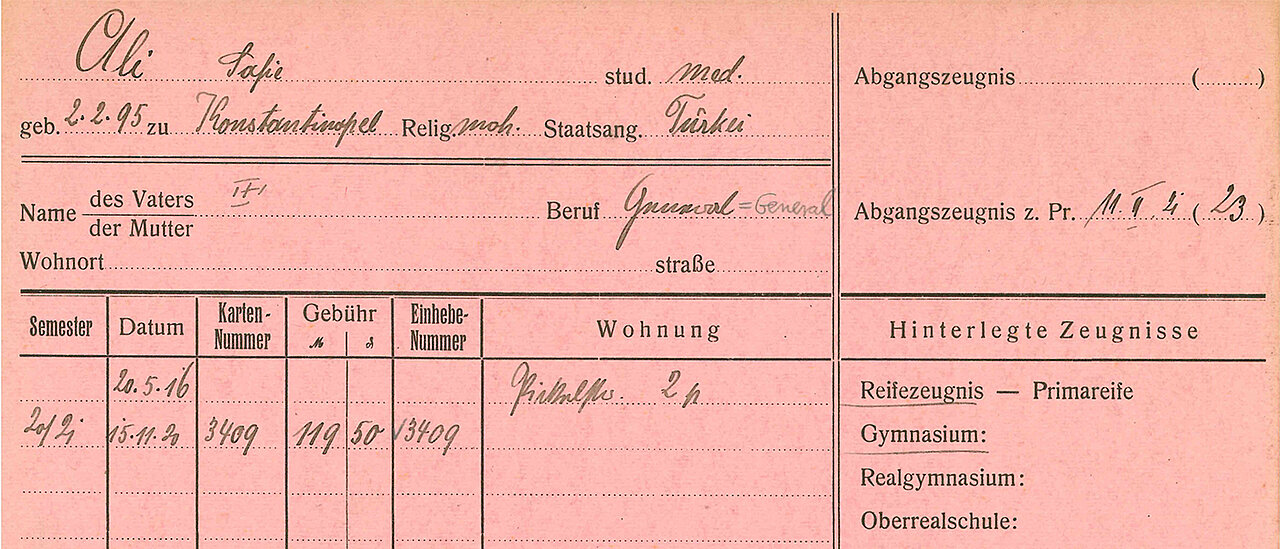 Ali Safie stud. med.
geb. 2.2.95 zu Konstantinopel Relig. moh. Staatsang. Türkei
Name des Vaters
der Mutter
Beruf General = General
Wohnort straße
Abgangszeugnis ( )
Abgangszeugnis z. Pr. 11. II. 21 ( 23 )
Semester Datum Karten-Nummer Gebühr M ₰ Einhebe-Nummer Wohnung
20.5.16 2 p
20/21 15.11.20 3409 119 50 13409
Hinterlegte Zeugnisse
Reifezeugnis — Primareife
Gymnasium:
Realgymnasium:
Oberrealschule: